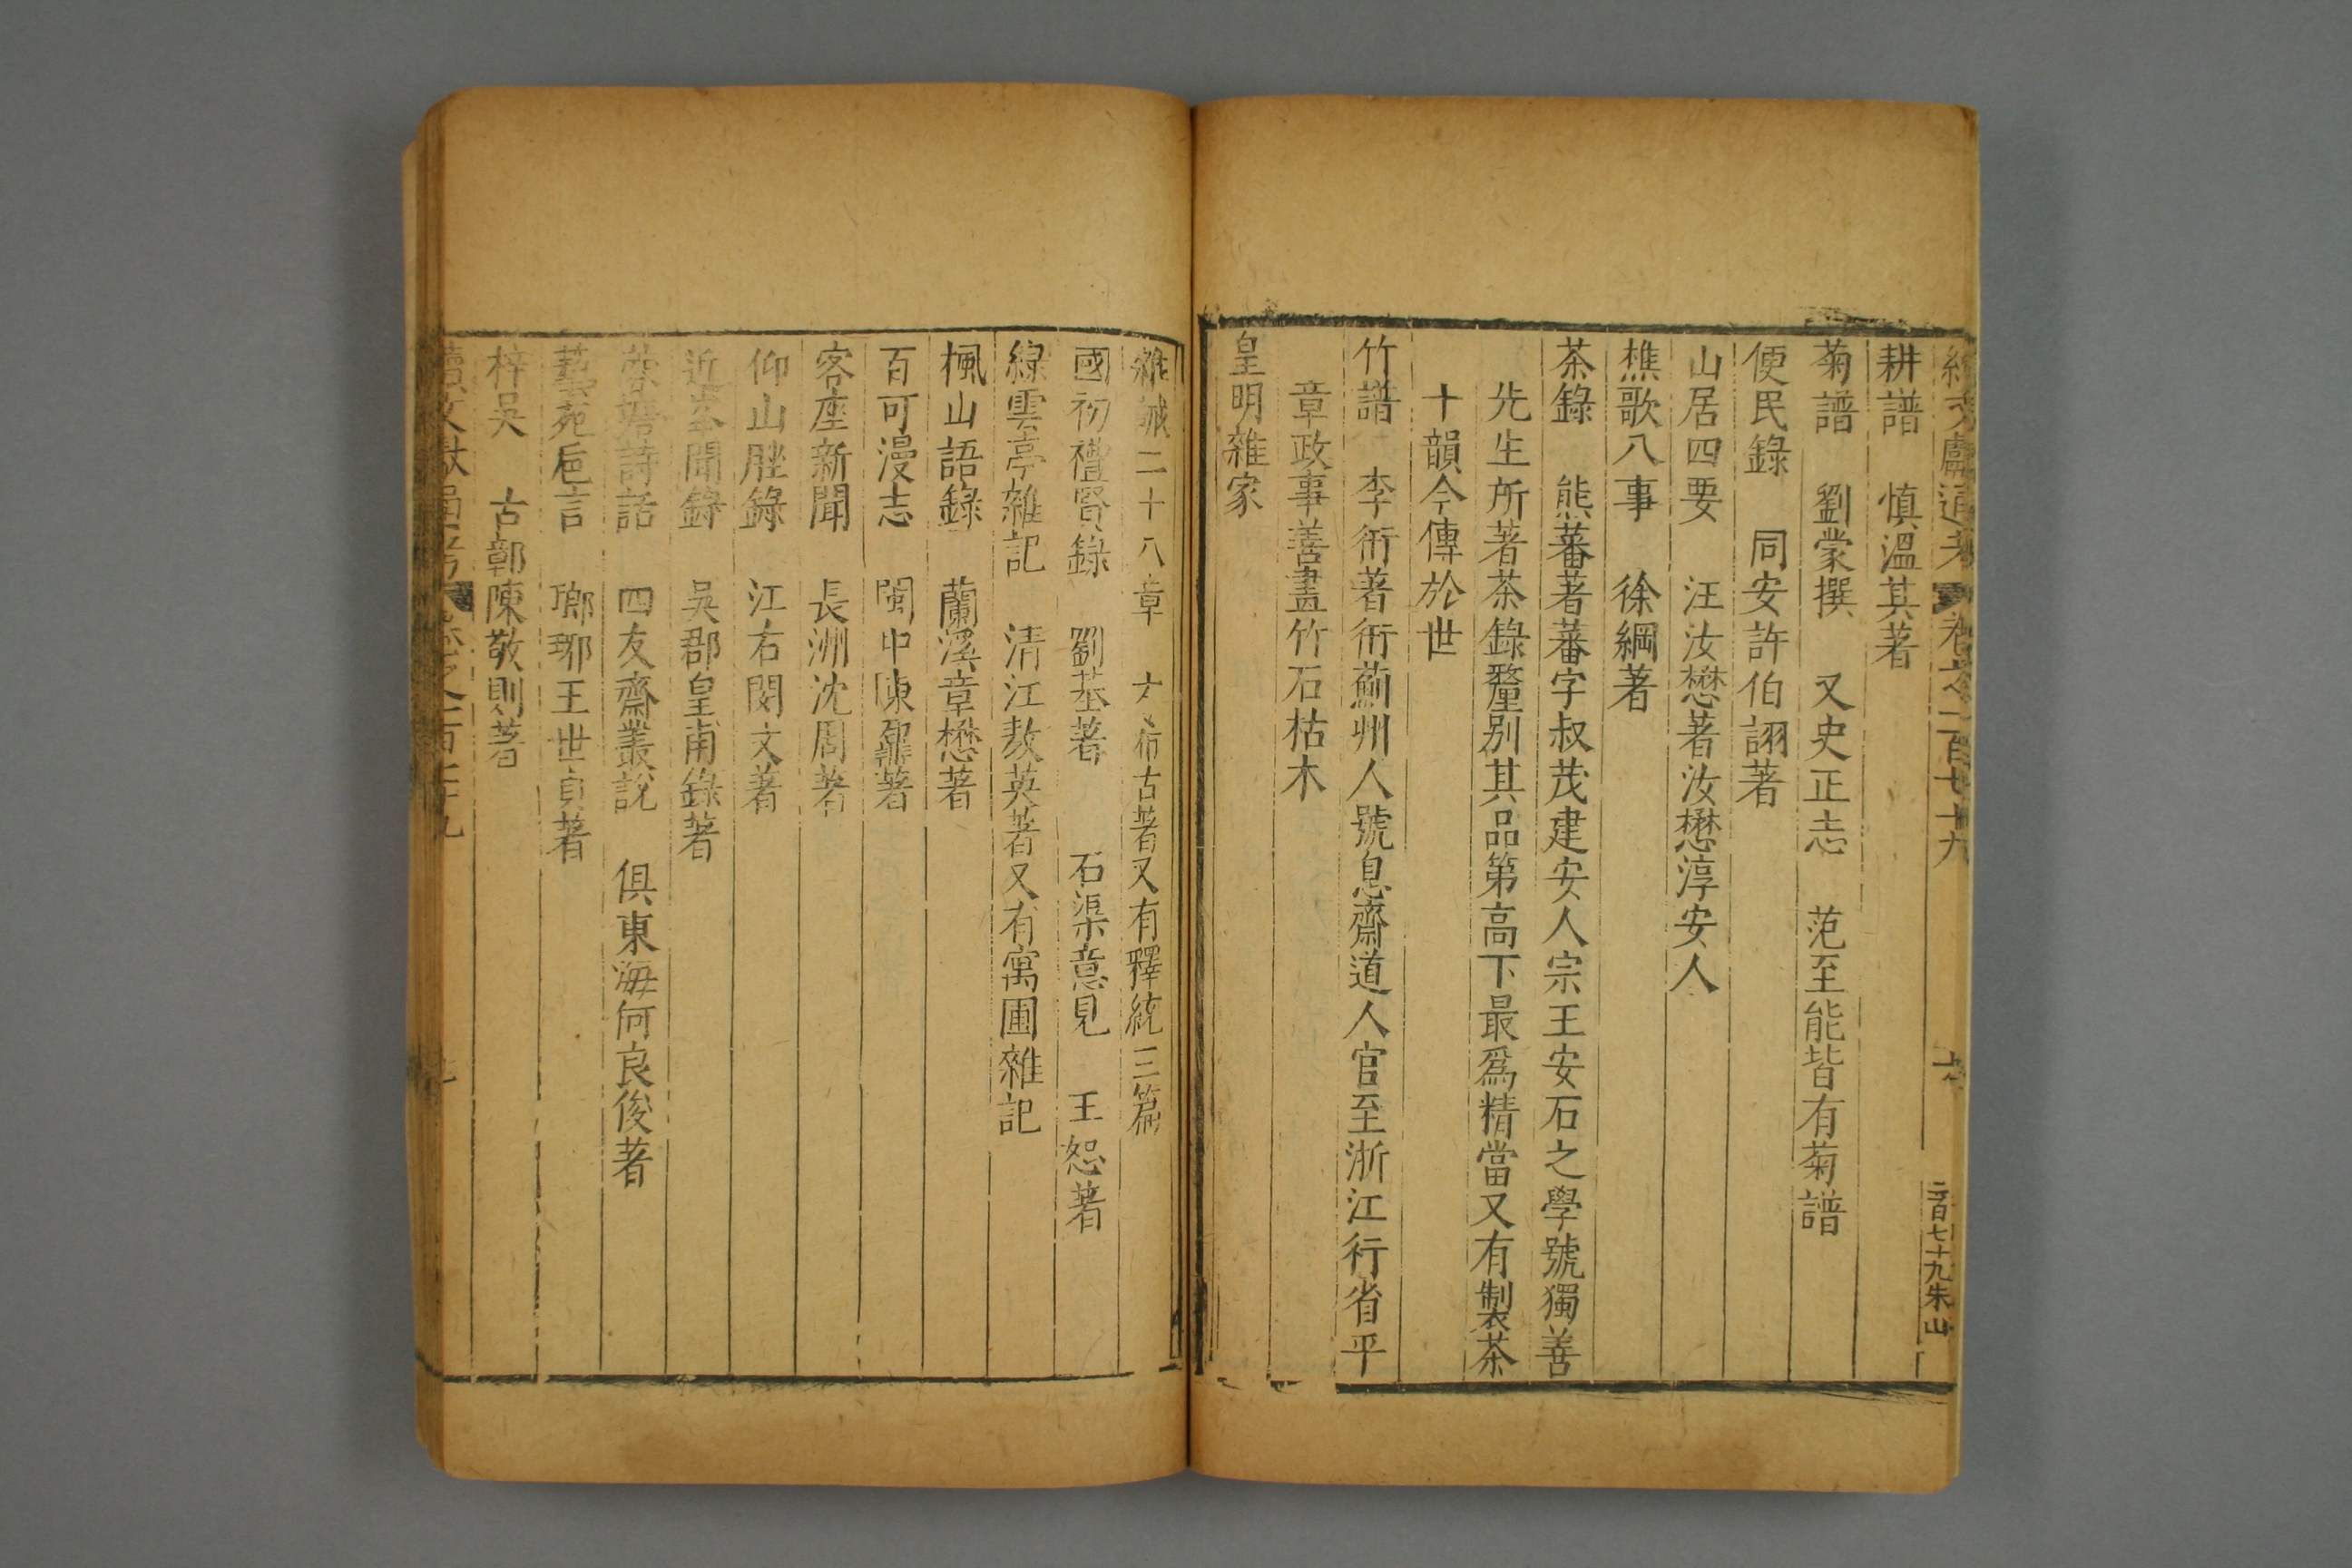 續文獻通考 卷之一百七十九
二百七十九朱山
耕譜 慎溫其著
菊譜 劉蒙撰 又史正志 范至能皆有菊譜
便民錄 同安許伯詡著
山居四要 汪汝懋著汝懋淳安人
樵歌八事 徐綱著
茶錄 熊蕃著蕃字叔茂建安人宗王安石之學號獨善
先生所著茶錄釐別其品第高下最爲精當又有製茶
十韻今傳於世
竹譜 李衎著衎薊州人號息齋道人官至浙江行省平
章政事善畫竹石枯木
皇明雜家
雜誡二十八章 方希古著又有釋統三篇
國初禮賢錄 劉基著 石渠意見 王恕著
綠雲亭雜記 清江敖英著又有寓圃雜記
楓山語錄 蘭溪章懋著
百可漫志 閩中陳鼐著
客座新聞 長洲沈周著
仰山脞錄 江右閔文著
近峯聞錄 吳郡皇甫錄著
詩話 四友齋叢說 俱東海何良俊著
藝苑巵言 瑯琊王世貞著
梓吳 古鄣陳敬則著
續文獻通考 卷之一百七十九